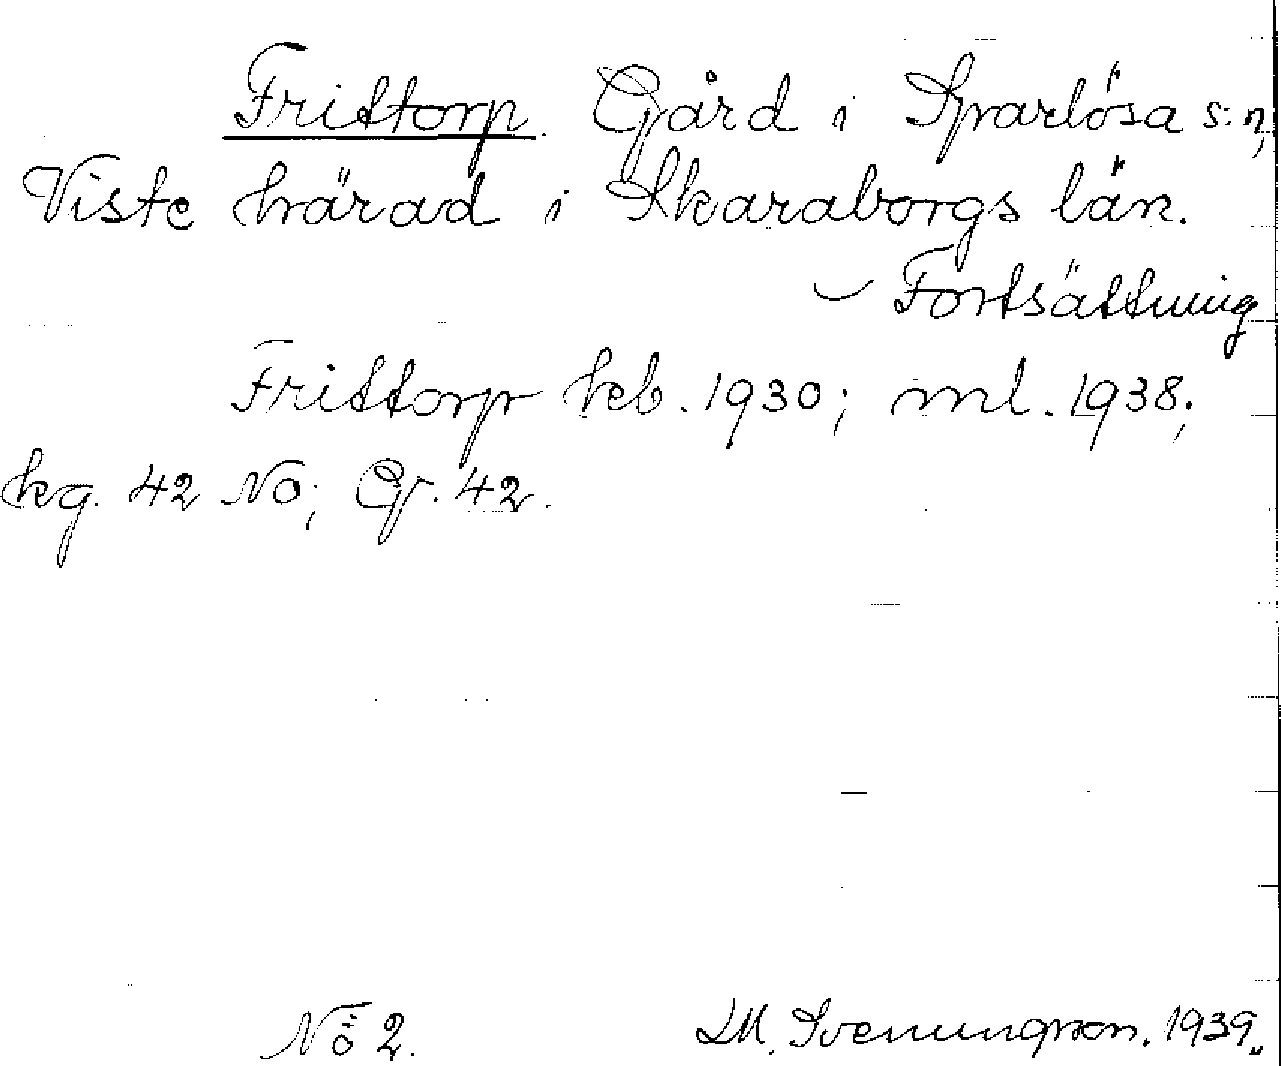 Frittorp. Gård i Sparlösa s:n,
Viste härad i Skaraborgs län.
— Fortsättning
Frittorp kb. 1930; ml. 1938;
kg. 42 No; Gr. 42.
Nö 2. M. Svenungson. 1939.